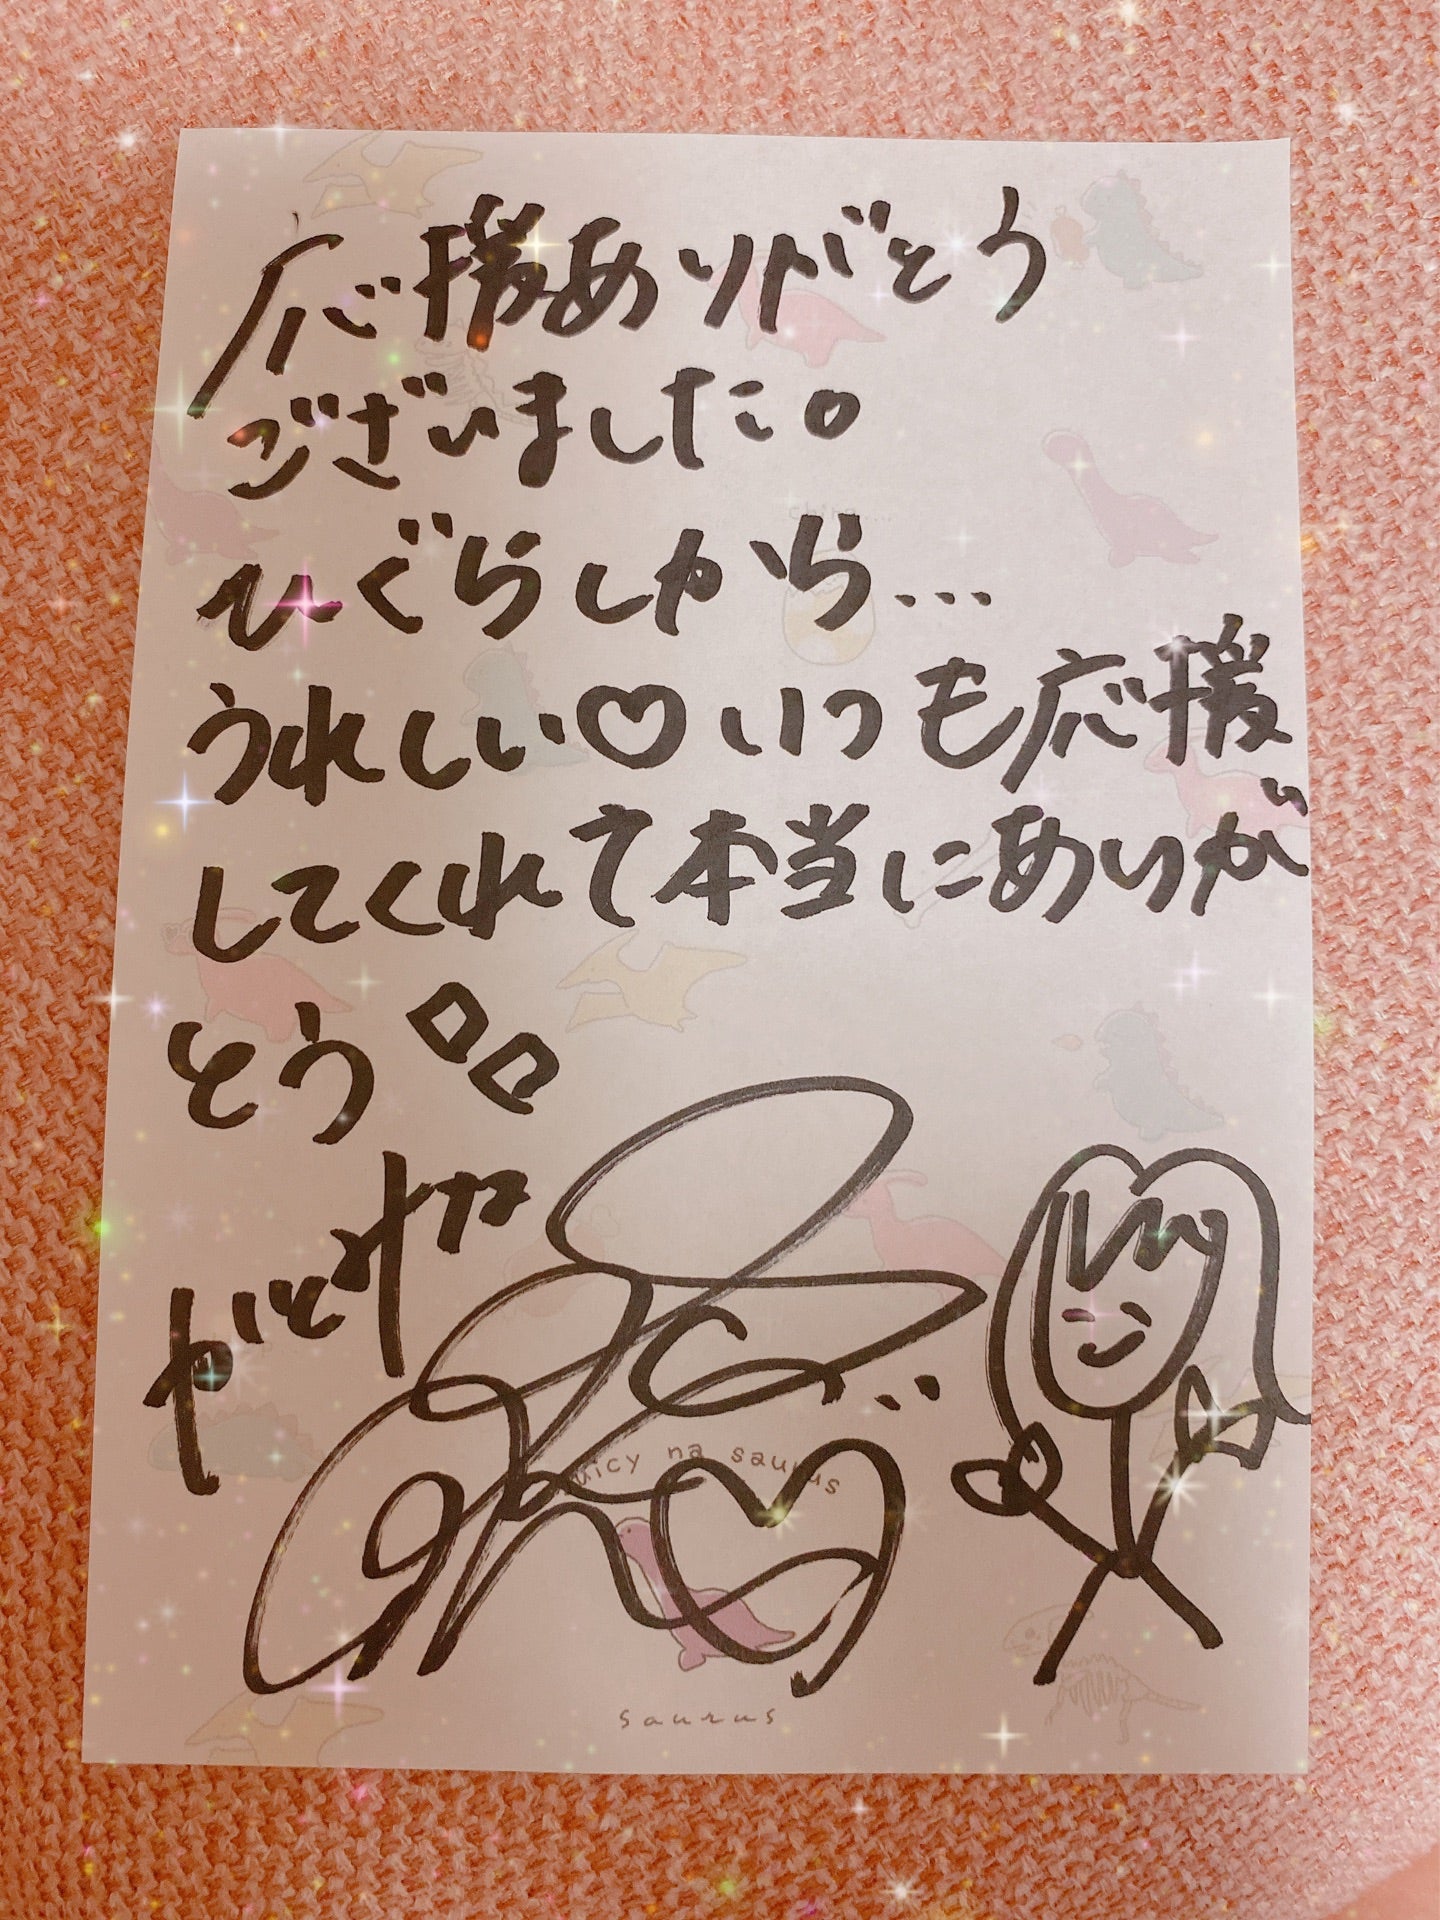 応援ありがとう
ございました。
ひぐらしから…
うれしい♡いつも応援
してくれて本当にありが
とう
chira...
juicy na saurus
saurus